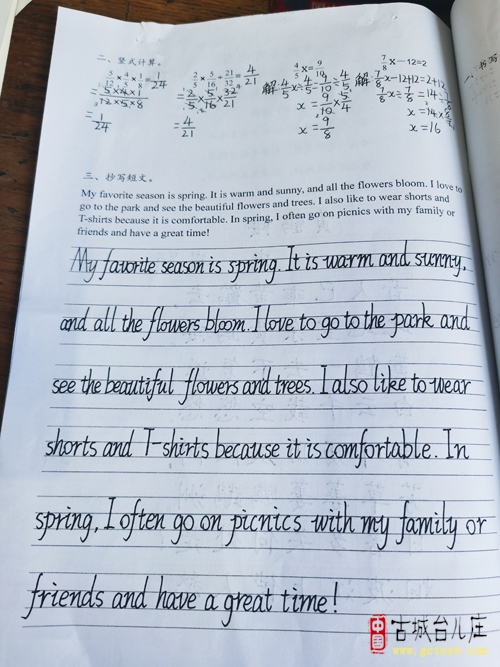 二、竖式计算。
3/15 × 4/5 × 1/8 = 1/24
= 3×4×1/12×5×8
= 1/24
2/5 × 5/16 ÷ 21/32 = 4/21
= 2/5 × 5/16 × 32/21
= 4/21
4/5 x = 9/10
解 4/5 x ÷ 4/5 = 9/10 ÷ 4/5
x = 9/10 × 5/4
x = 9/8
7/8 x − 12 = 2
解 7/8 x − 12 + 12 = 2 + 12
7/8 x ÷ 7/8 = 14 ÷ 7/8
x = 14 × 8/7
x = 16
书写
三、抄写短文。
My favorite season is spring. It is warm and sunny, and all the flowers bloom. I love to
go to the park and see the beautiful flowers and trees. I also like to wear shorts and
T-shirts because it is comfortable. In spring, I often go on picnics with my family or
friends and have a great time!
My favorite season is spring. It is warm and sunny,
and all the flowers bloom. I love to go to the park and
see the beautiful flowers and trees. I also like to wear
shorts and T-shirts because it is comfortable. In
spring, I often go on picnics with my family or
friends and have a great time!
中国 古城台儿庄